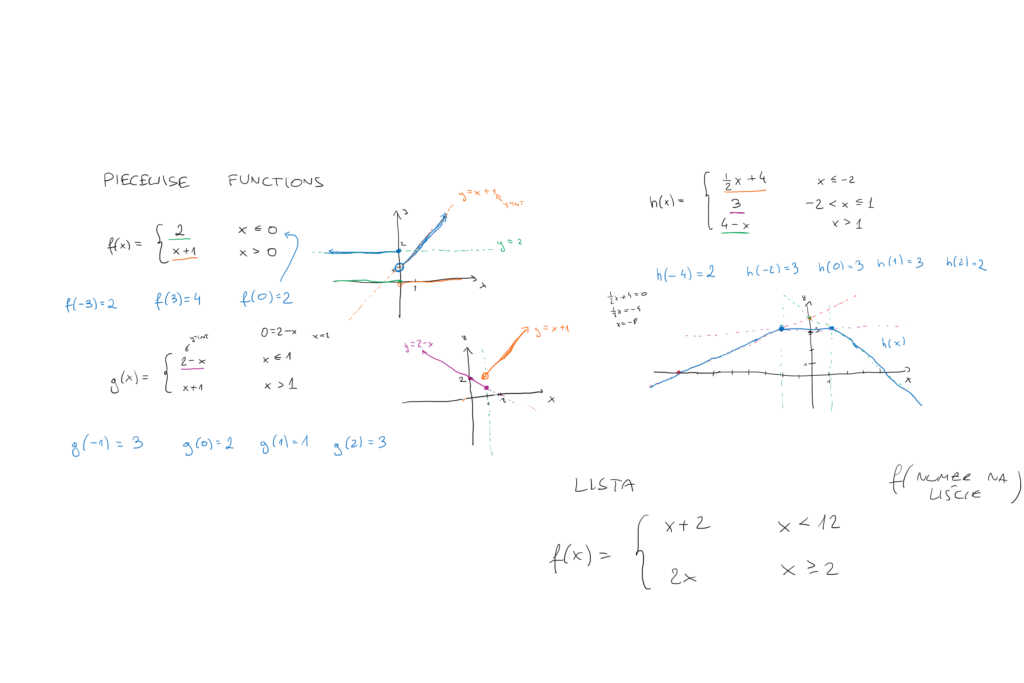 PIECEWISE FUNCTIONS
f(x) = { 2 x ≤ 0
x+1 x > 0
f(-3)=2 f(3)=4 f(0)=2
y=x+1
y-INT
y
2
y=2
1
x
y-INT 0=2-x x=2
g(x) = { 2-x x ≤ 1
x+1 x > 1
g(-1)=3 g(0)=2 g(1)=1 g(2)=3
y=2-x
y
y=x+1
2
1 2
x
h(x) = { ½x+4 x ≤ -2
3 -2 < x ≤ 1
4-x x > 1
h(-4)=2 h(-2)=3 h(0)=3 h(1)=3 h(2)=2
½x+4=0
½x=-4
x=-8
y
3
h(x)
1
1
x
LISTA f(NUMER NA
LIŚCIE)
f(x) = { x+2 x < 12
2x x ≥ 2